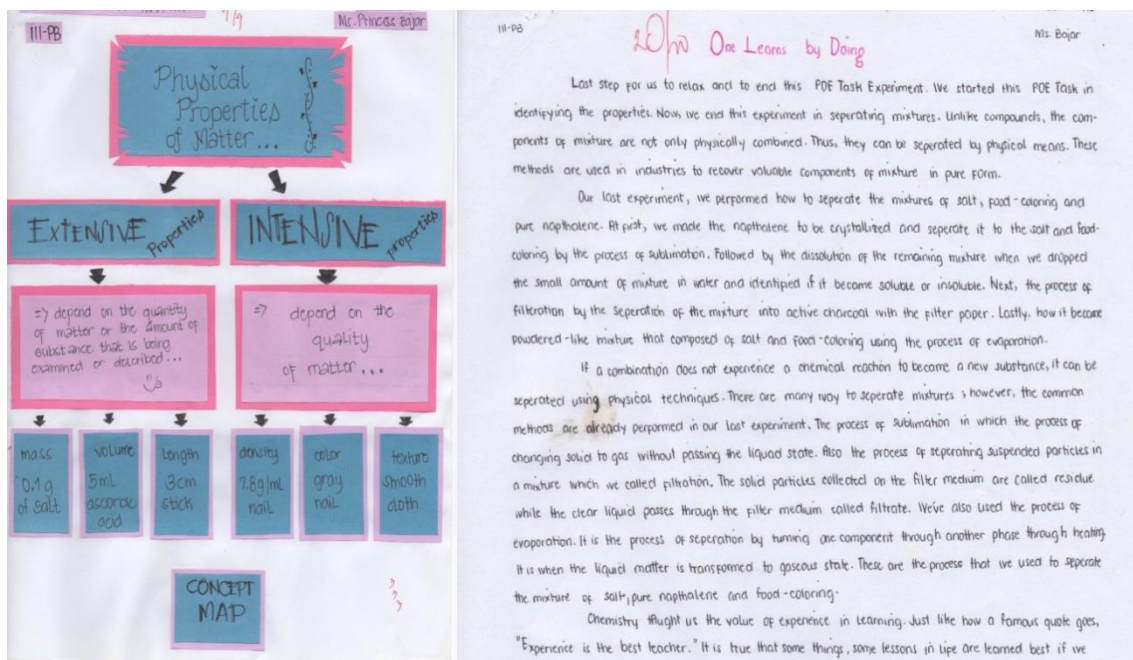 III-PB
9/9
Ms. Princess Bajar
Physical
Properties
of Matter...
EXTENSIVE
Properties
INTENSIVE
properties
=> depend on the quantity
of matter or the amount of
substance that is being
examined or described...
=> depend on the
quality
of matter...
mass
0.1 g
of salt
volume
5mL
ascorbic
acid
length
3cm
stick
density
7.8g/mL
nail
color
gray
nail
texture
smooth
cloth
CONCEPT
MAP
III-PB
Ms. Bajar
20/20 One Learns by Doing
Last step for us to relax and to end this POE Task Experiment. We started this POE Task in
identifying the properties. Now, we end this experiment in seperating mixtures. Unlike compounds, the com-
ponents of mixture are not only physically combined. Thus, they can be seperated by physical means. These
methods are used in industries to recover valuable components of mixture in pure form.
Our last experiment, we performed how to seperate the mixtures of salt, food-coloring and
pure napthalene. At first, we made the napthalene to be crystallized and seperate it to the salt and food-
coloring by the process of sublimation. Followed by the dissolution of the remaining mixture when we dropped
the small amount of mixture in water and identified if it became soluble or insoluble. Next, the process of
filteration by the seperation of the mixture into active charcoal with the filter paper. Lastly, how it became
powdered-like mixture that composed of salt and food-coloring using the process of evaporation.
If a combination does not experience a chemical reaction to become a new substance, it can be
seperated using physical techniques. There are many way to seperate mixtures; however, the common
methods are already performed in our last experiment. The process of sublimation in which the process of
changing solid to gas without passing the liquid state. Also the process of seperating suspended particles in
a mixture which we called filtration. The solid particles collected on the filter medium are called residue
while the clear liquid passes through the filter medium called filtrate. We've also used the process of
evaporation. It is the process of seperation by turning one component through another phase through heating.
It is when the liquid matter is transformed to gaseous state. These are the process that we used to seperate
the mixture of salt, pure napthalene and food-coloring.
Chemistry taught us the value of experience in Learning. Just like how a famous quote goes,
"Experience is the best teacher." It is true that some things, some lessons in life are learned best if we